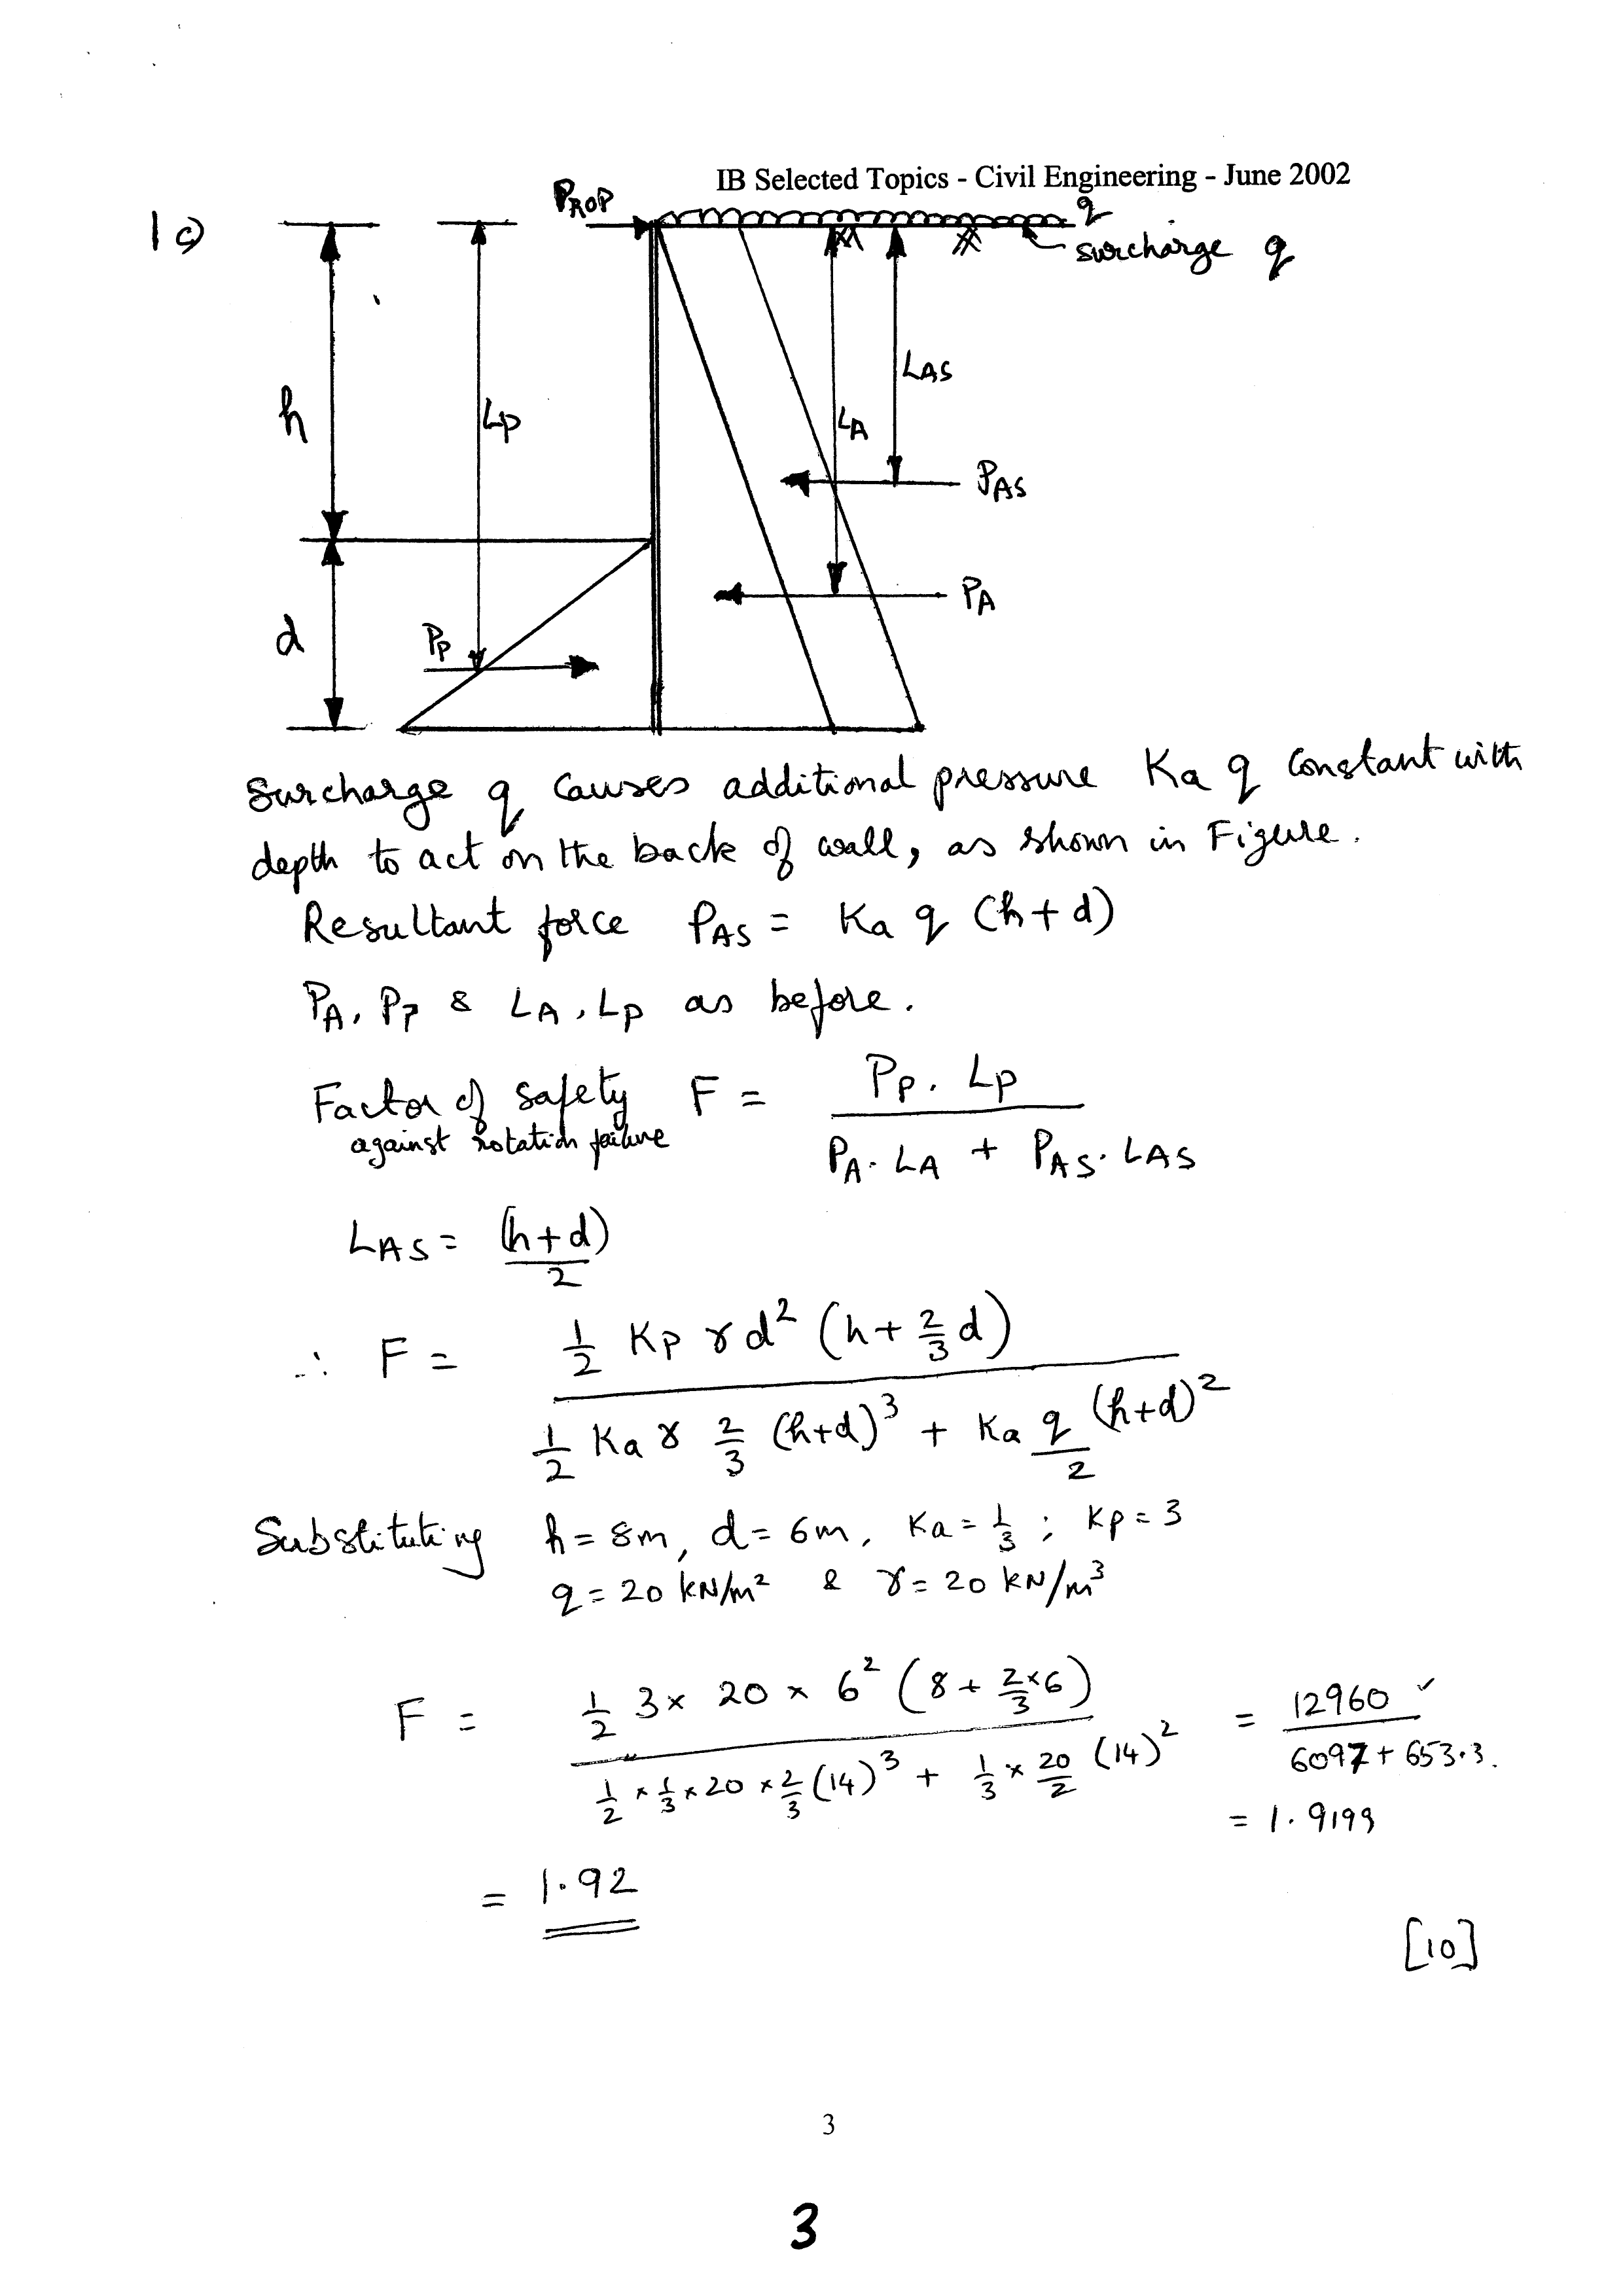 IB Selected Topics - Civil Engineering - June 2002
1 c)
PROP
q
surcharge q
h
LP
LAS
LA
PAS
PA
d
Pp
Surcharge q causes additional pressure Ka q constant with
depth to act on the back of wall, as shown in Figure.
Resultant force PAS = Ka q (h+d)
PA, Pp & LA, Lp as before.
Factor of safety F = Pp. Lp / PA. LA + PAS. LAS
against rotation failure
LAS = (h+d)/2
∴ F = 1/2 Kp γ d² (h + 2/3 d) / 1/2 Ka γ 2/3 (h+d)³ + Ka q/2 (h+d)²
Substituting h = 8m, d = 6m, Ka = 1/3 ; Kp = 3
q = 20 kN/m² & γ = 20 kN/m³
F = 1/2 3 × 20 × 6² (8 + 2/3 × 6) / 1/2 × 1/3 × 20 × 2/3 (14)³ + 1/3 × 20/2 (14)² = 12960 ✓ / 6097 + 653.3.
= 1.9199
= 1.92
[10]
3
3